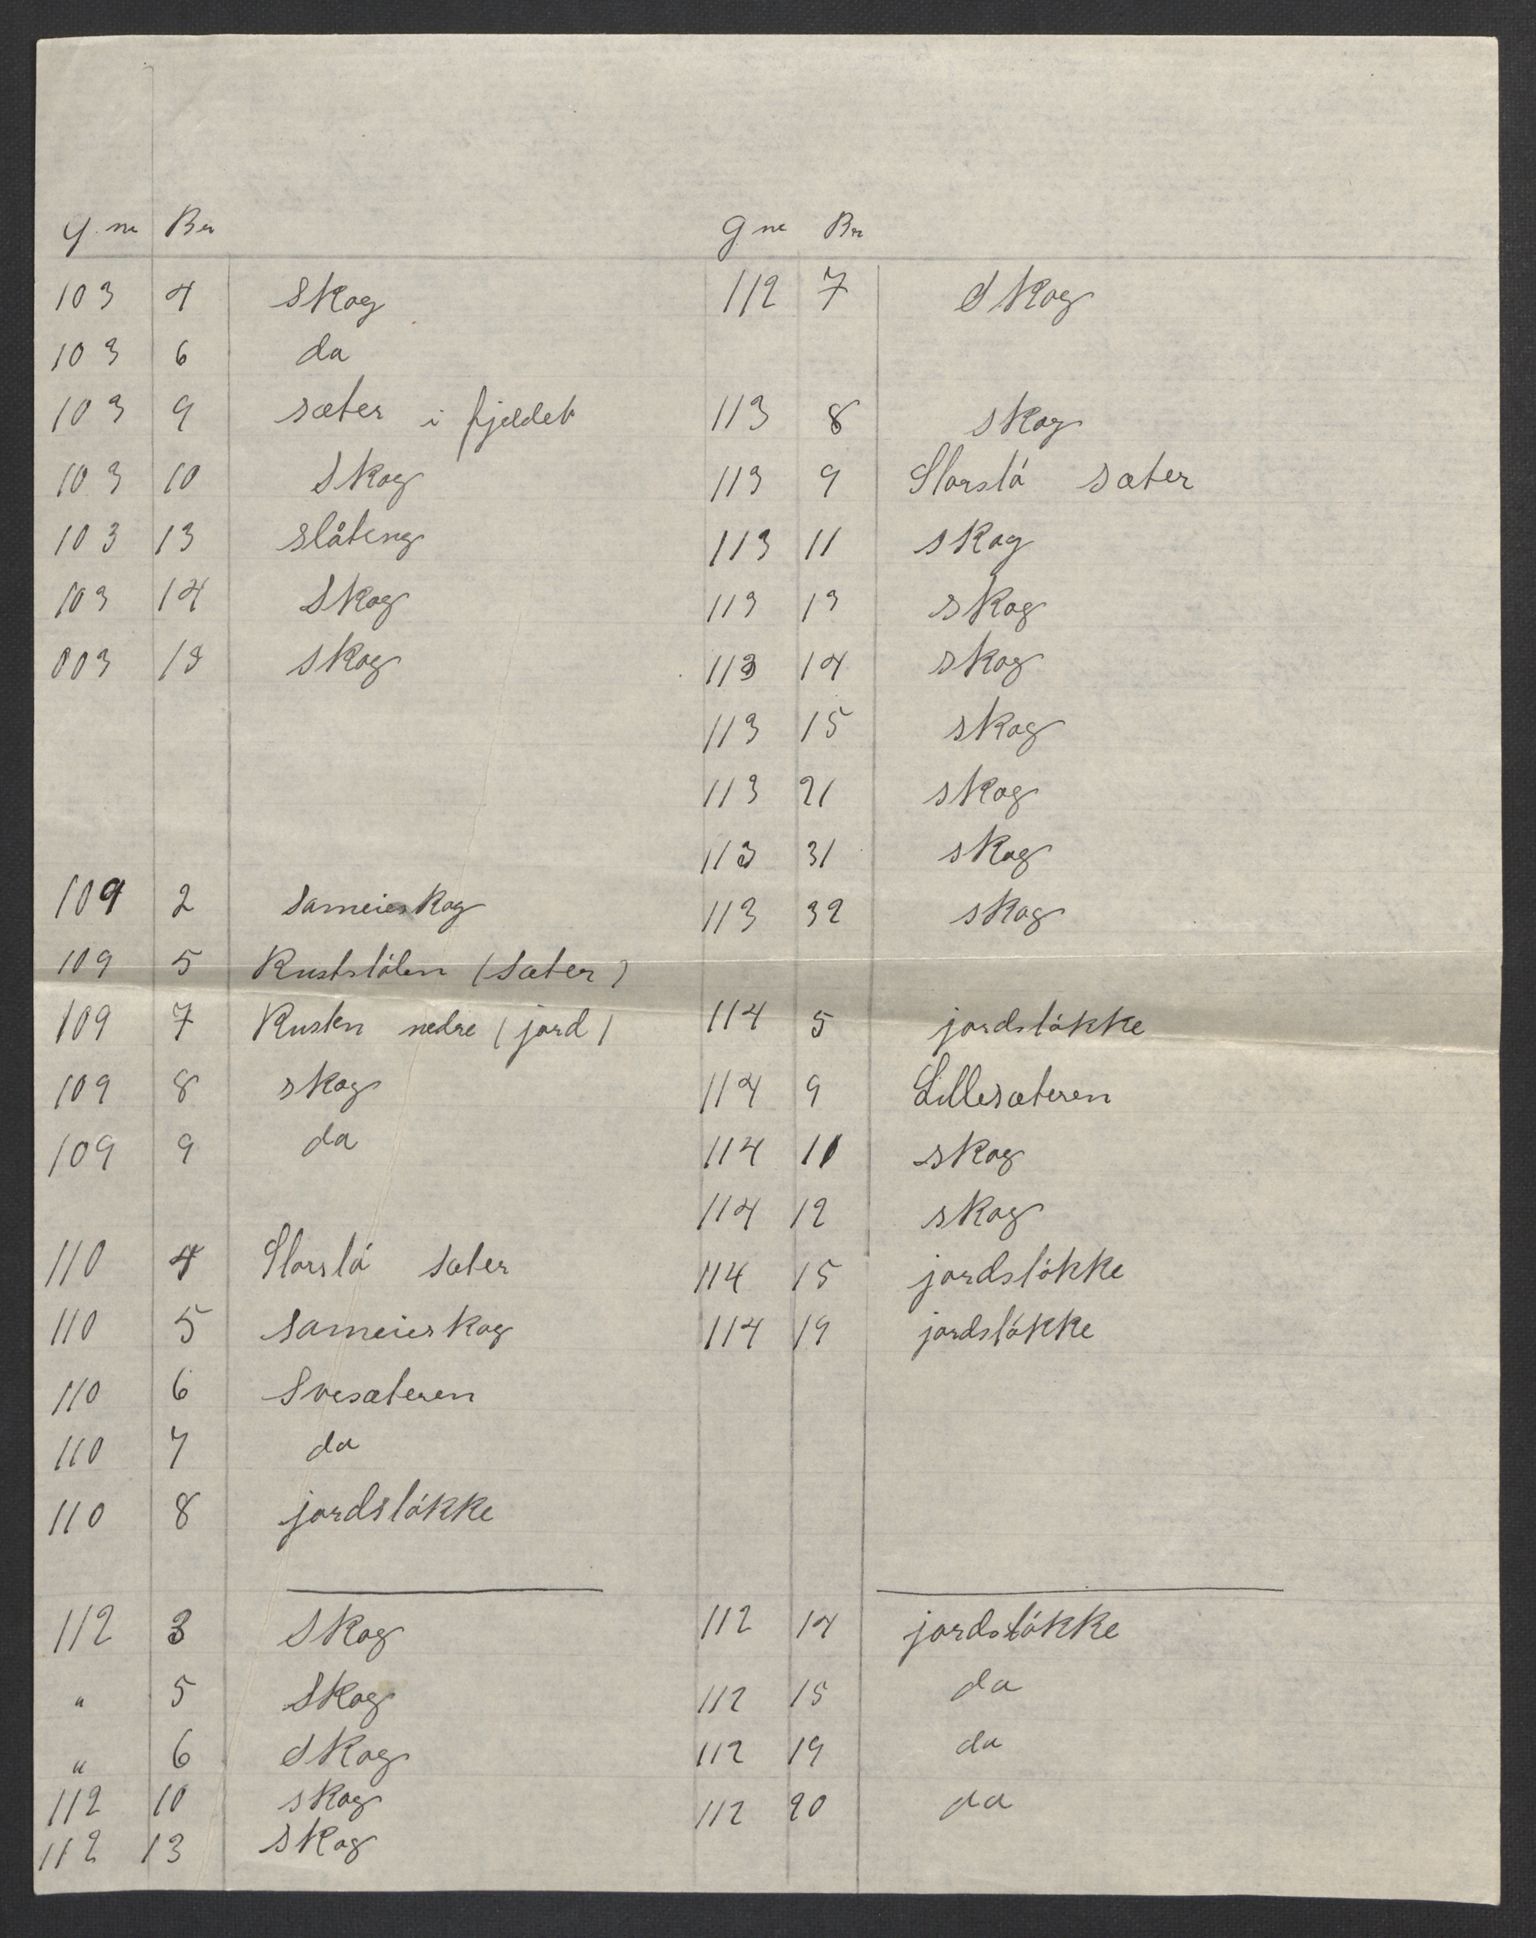 G nr Br
103 4 Skog
103 6 da
103 9 sæter i fjeldet
103 10 Skog
103 13 slåteng
103 14 Skog
003 13 skog
109 2 Sameieskog
109 5 Ruststølen (Sæter)
109 7 Rusten nedre (jord)
109 8 skog
109 9 da
110 4 Storslå Sæter
110 5 Sameieskog
110 6 Svesæteren
110 7 da
110 8 jordsløkke
112 3 Skog
" 5 Skog
" 6 Skog
112 10 skog
112 13 Skog
G nr Br
112 7 Skog
113 8 skog
113 9 Storslå Sæter
113 11 skog
113 13 skog
113 14 skog
113 15 skog
113 21 skog
113 31 skog
113 32 skog
114 5 jordsløkke
114 9 Lillesæteren
114 11 skog
114 12 skog
114 15 jordsløkke
114 19 jordsløkke
112 14 jordsløkke
112 15 da
112 19 da
112 20 da